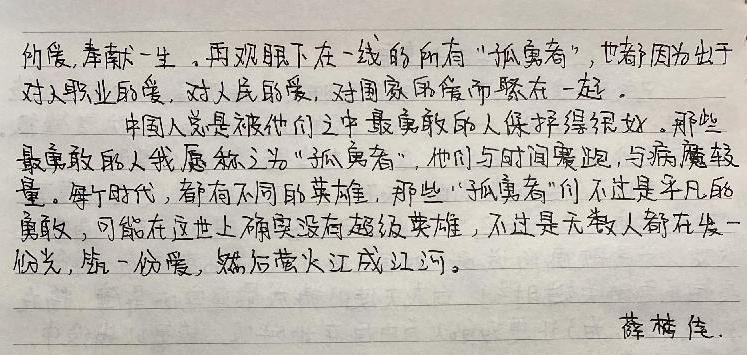 的爱，奉献一生。再观眼下在一线的所有“孤勇者”，也都因为出于
对人职业的爱，对人民的爱，对国家的爱而聚在一起。
中国人总是被他们之中最勇敢的人保护得很好。那些
最勇敢的人我愿称之为“孤勇者”，他们与时间赛跑，与病魔较
量。每个时代，都有不同的英雄，那些“孤勇者”们不过是平凡的
勇敢，可能在这世上确实没有超级英雄，不过是无数人都在发一
份光，一份爱，然后萤火汇成江河。
薛